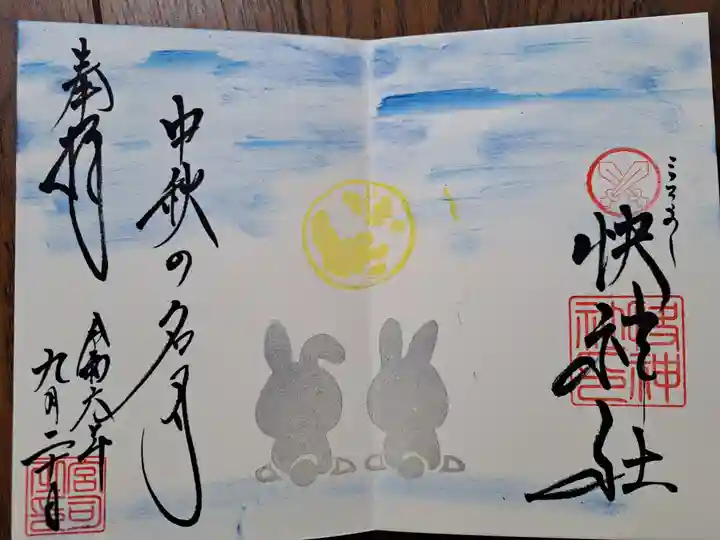 こころよし
快神社
中秋の名月
奉拝
令和六年
九月二十日